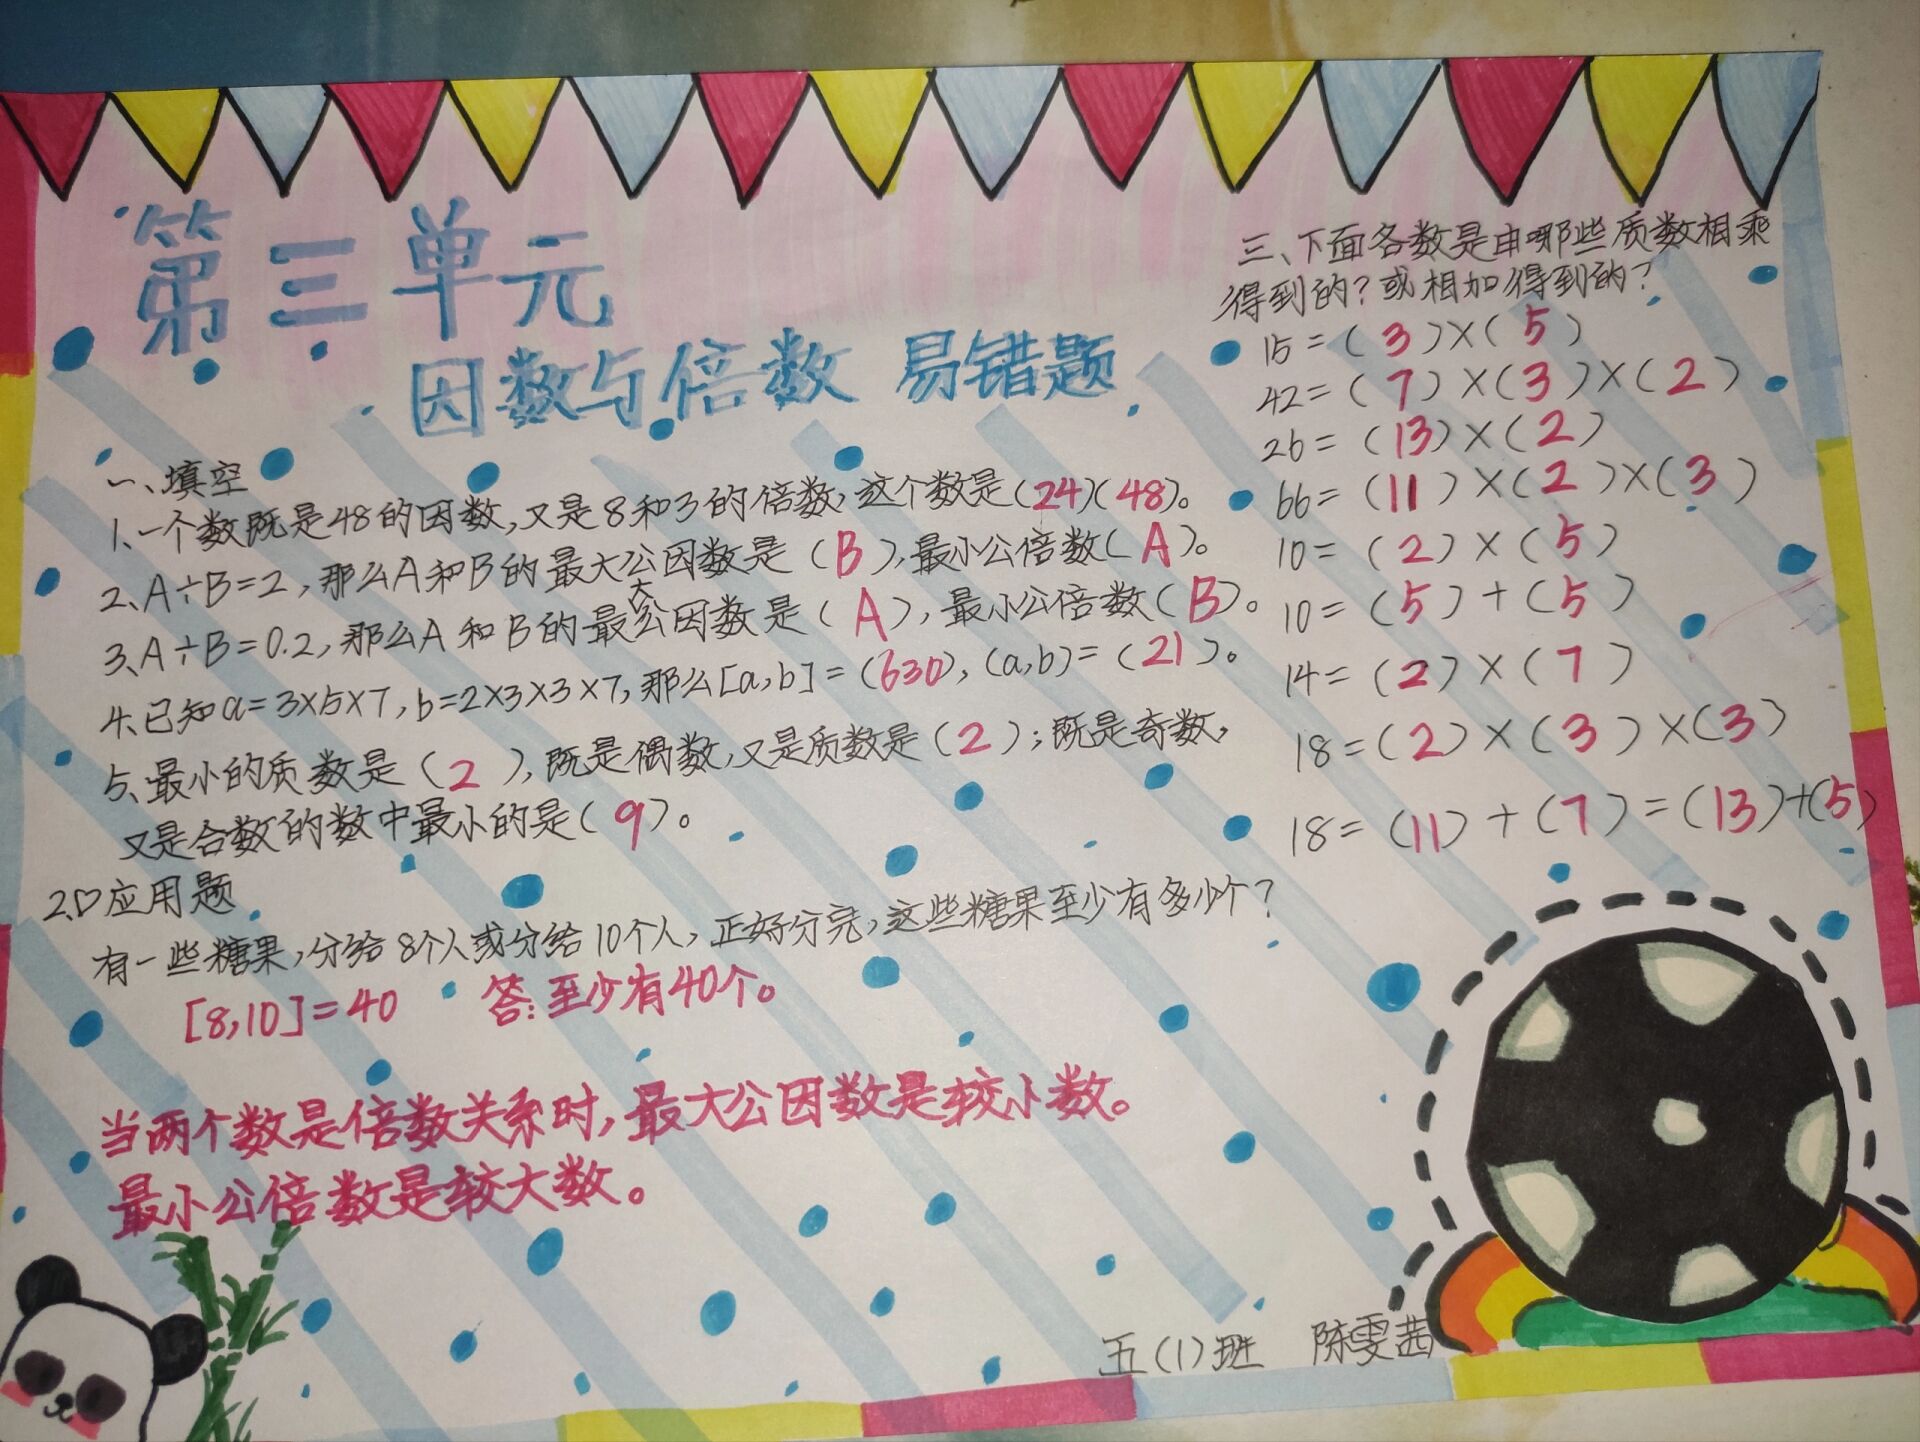 第三单元
因数与倍数 易错题
一、填空
1、一个数既是48的因数,又是8和3的倍数,这个数是(24)(48)。
2、A÷B=2,那么A和B的最大公因数是(B),最小公倍数(A)。
3、A÷B=0.2,那么A和B的最大公因数是(A),最小公倍数(B)。
4、已知a=3×5×7,b=2×3×3×7,那么[a,b]=(630),(a,b)=(21)。
5、最小的质数是(2),既是偶数,又是质数是(2);既是奇数,
又是合数的数中最小的是(9)。
2、♡应用题
有一些糖果,分给8个人或分给10个人,正好分完,这些糖果至少有多少个?
[8,10]=40 答:至少有40个。
当两个数是倍数关系时,最大公因数是较小数。
最小公倍数是较大数。
三、下面各数是由哪些质数相乘
得到的?或相加得到的?
15=(3)×(5)
42=(7)×(3)×(2)
26=(13)×(2)
66=(11)×(2)×(3)
10=(2)×(5)
10=(5)+(5)
14=(2)×(7)
18=(2)×(3)×(3)
18=(11)+(7)=(13)+(5)
五(1)班 陈雯茜